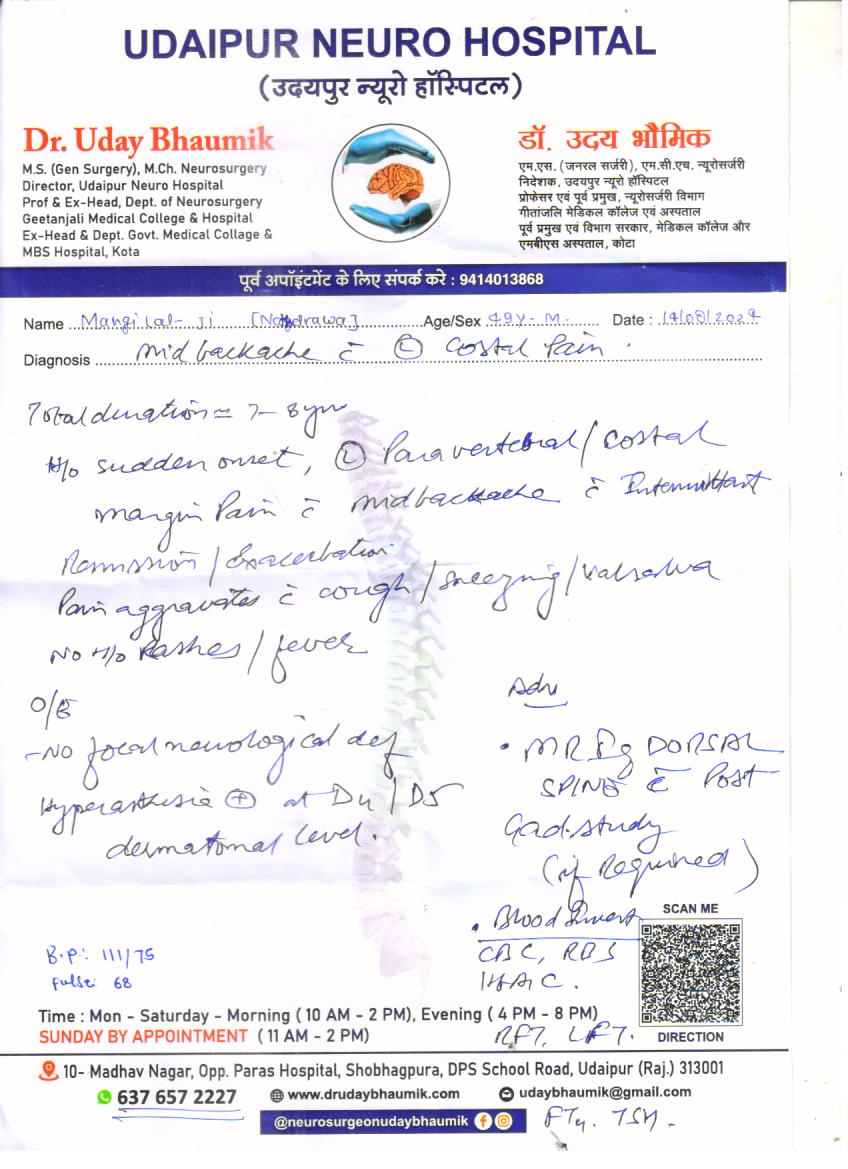 UDAIPUR NEURO HOSPITAL
(उदयपुर न्यूरो हॉस्पिटल)
Dr. Uday Bhaumik
M.S. (Gen Surgery), M.Ch. Neurosurgery
Director, Udaipur Neuro Hospital
Prof & Ex-Head, Dept. of Neurosurgery
Geetanjali Medical College & Hospital
Ex-Head & Dept. Govt. Medical Collage &
MBS Hospital, Kota
डॉ. उदय भौमिक
एम.एस. (जनरल सर्जरी), एम.सी.एच. न्यूरोसर्जरी
निदेशक, उदयपुर न्यूरो हॉस्पिटल
प्रोफेसर एवं पूर्व प्रमुख, न्यूरोसर्जरी विभाग
गीतांजलि मेडिकल कॉलेज एवं अस्पताल
पूर्व प्रमुख एवं विभाग सरकार, मेडिकल कॉलेज और
एमबीएस अस्पताल, कोटा
पूर्व अपॉइंटमेंट के लिए संपर्क करे : 9414013868
Name Mangilal-Ji Age/Sex 49y-M. Date : 14/08/2024
Diagnosis Mid backache c̄ Ⓛ Costal Pain.
Total duration = 7-8 yrs
H/o sudden onset, Ⓛ Paravertebral/costal
margin Pain c̄ midbackache c̄ Intermittant
Remission/Exacerbation
Pain aggravates c̄ cough/sneezing/valsalva
No H/o Rashes/fever
O/E
-No focal neurological def
Hyperasthesia ⊕ at D4/D5
dermatomal level.
B.P:- 111/75
Pulse: 68
Adv
• MRIg DORSAL
SPINE c̄ Post
Gad. study
(if Required)
• Blood Invest
CBC, RBS
HbA1C.
RFT, LFT.
FT4. TSH-
SCAN ME
DIRECTION
Time : Mon - Saturday - Morning ( 10 AM - 2 PM), Evening ( 4 PM - 8 PM)
SUNDAY BY APPOINTMENT ( 11 AM - 2 PM)
10- Madhav Nagar, Opp. Paras Hospital, Shobhagpura, DPS School Road, Udaipur (Raj.) 313001
637 657 2227 www.drudaybhaumik.com udaybhaumik@gmail.com
@neurosurgeonudaybhaumik